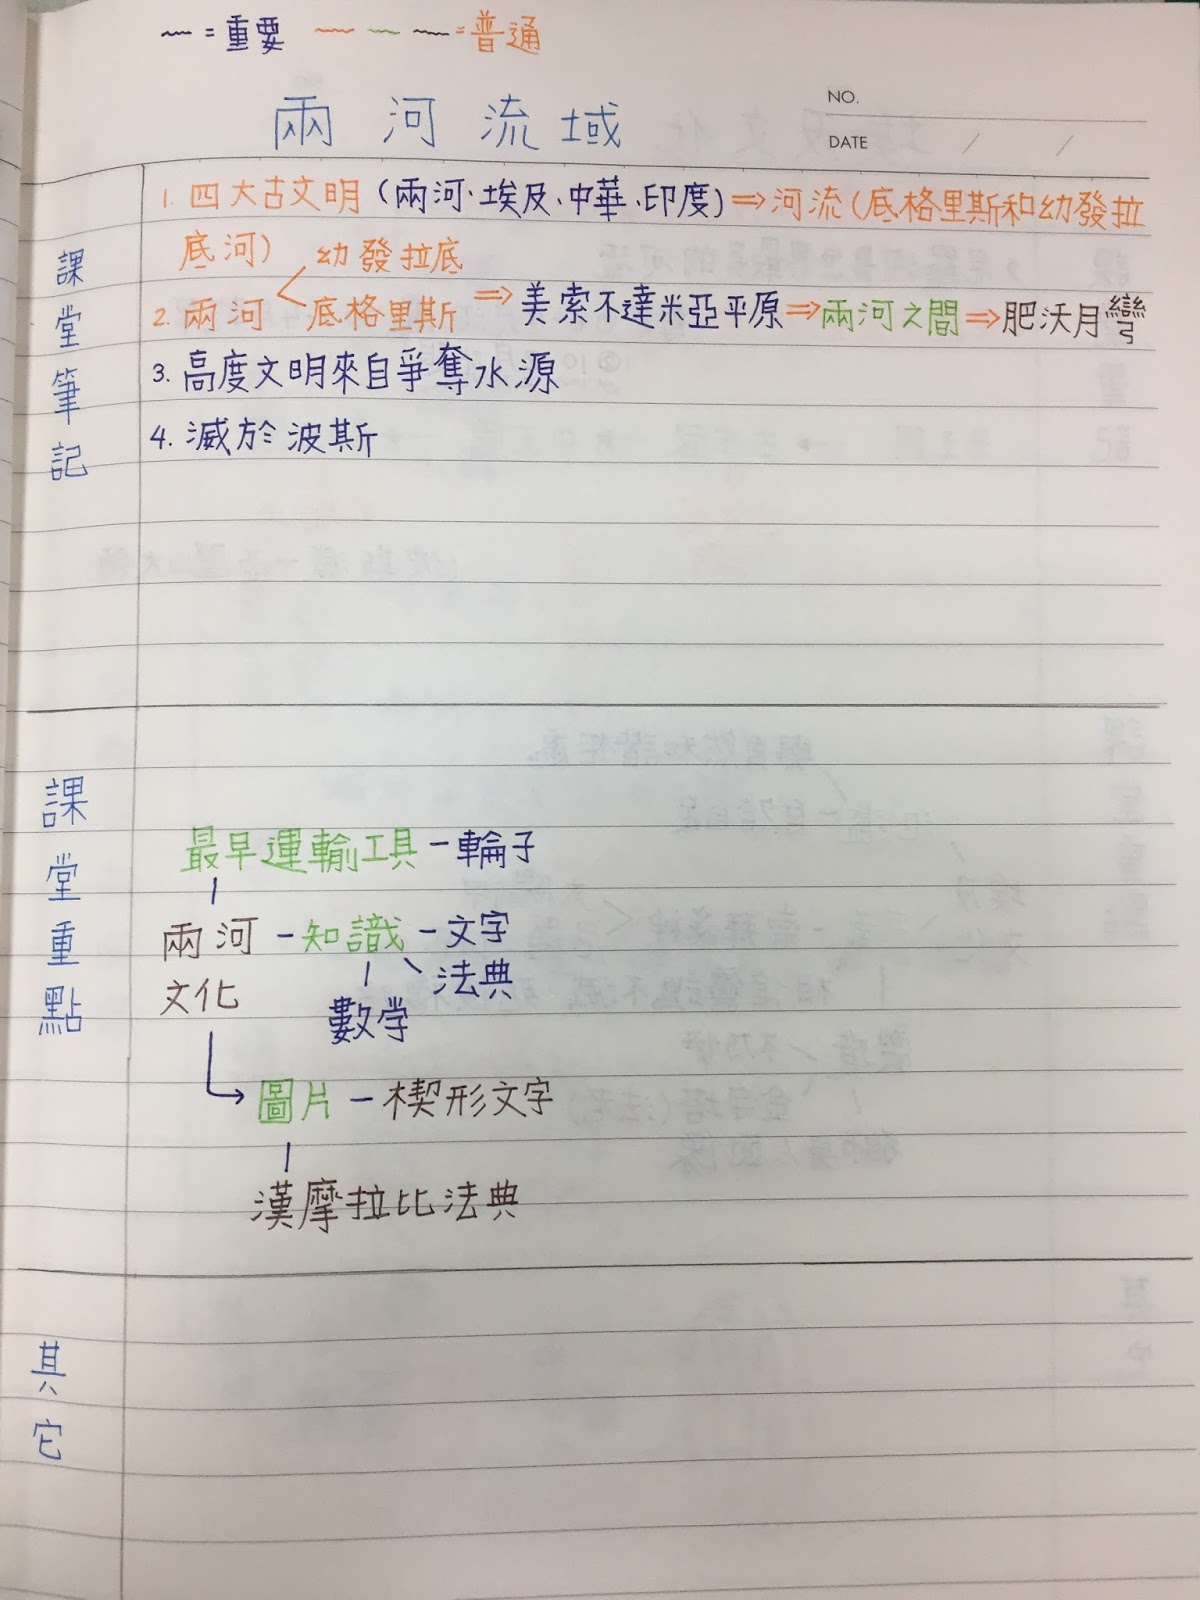 ~ = 重要 ~ ~ ~ = 普通
兩河流域
NO.
DATE / /
課堂筆記
1. 四大古文明(兩河、埃及、中華、印度)⇒河流(底格里斯和幼發拉
底河)
幼發拉底
2. 兩河 < 底格里斯 ⇒ 美索不達米亞平原⇒兩河之間⇒肥沃月彎
3. 高度文明來自爭奪水源
4. 滅於波斯
課堂重點
最早運輸工具-輪子
兩河-知識-文字
文化
法典
數学
圖片-楔形文字
漢摩拉比法典
其它